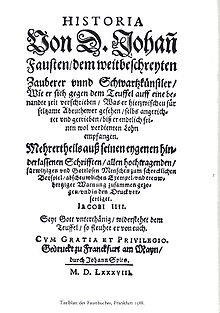 HISTORIA
Von D. Johañ
Fausten/ dem weitbeschreyten
Zauberer vnnd Schwartzkünstler/
Wie er sich gegen dem Teuffel auff eine be-
nandte zeit verschrieben/ Was er hierzwischen für
seltzame Abenthewer gesehen/ selbs angerich-
tet vnd getrieben/ biß er endtlich sei-
nen wol verdienten Lohn
empfangen.
Mehrertheils auß seinen eygenen hin-
derlassenen Schrifften/ allen hochtragenden/
fürwitzigen vnd Gottlosen Menschen zum schrecklichen
Beyspiel/ abscheuwlichen Exempel/ vnd trew-
hertziger Warnung zusammen gezo-
gen/ vnd in den Druck ver-
fertiget.
IACOBI IIII.
Seyt Gott vnterthänig/ widerstehet dem
Teuffel/ so fleuhet er von euch.
CVM GRATIA ET PRIVILEGIO.
Gedruckt zu Franckfurt am Mayn/
durch Johann Spies.
M. D. LXXXVIII.
Titelblatt des Faustbuches, Frankfurt 1588.